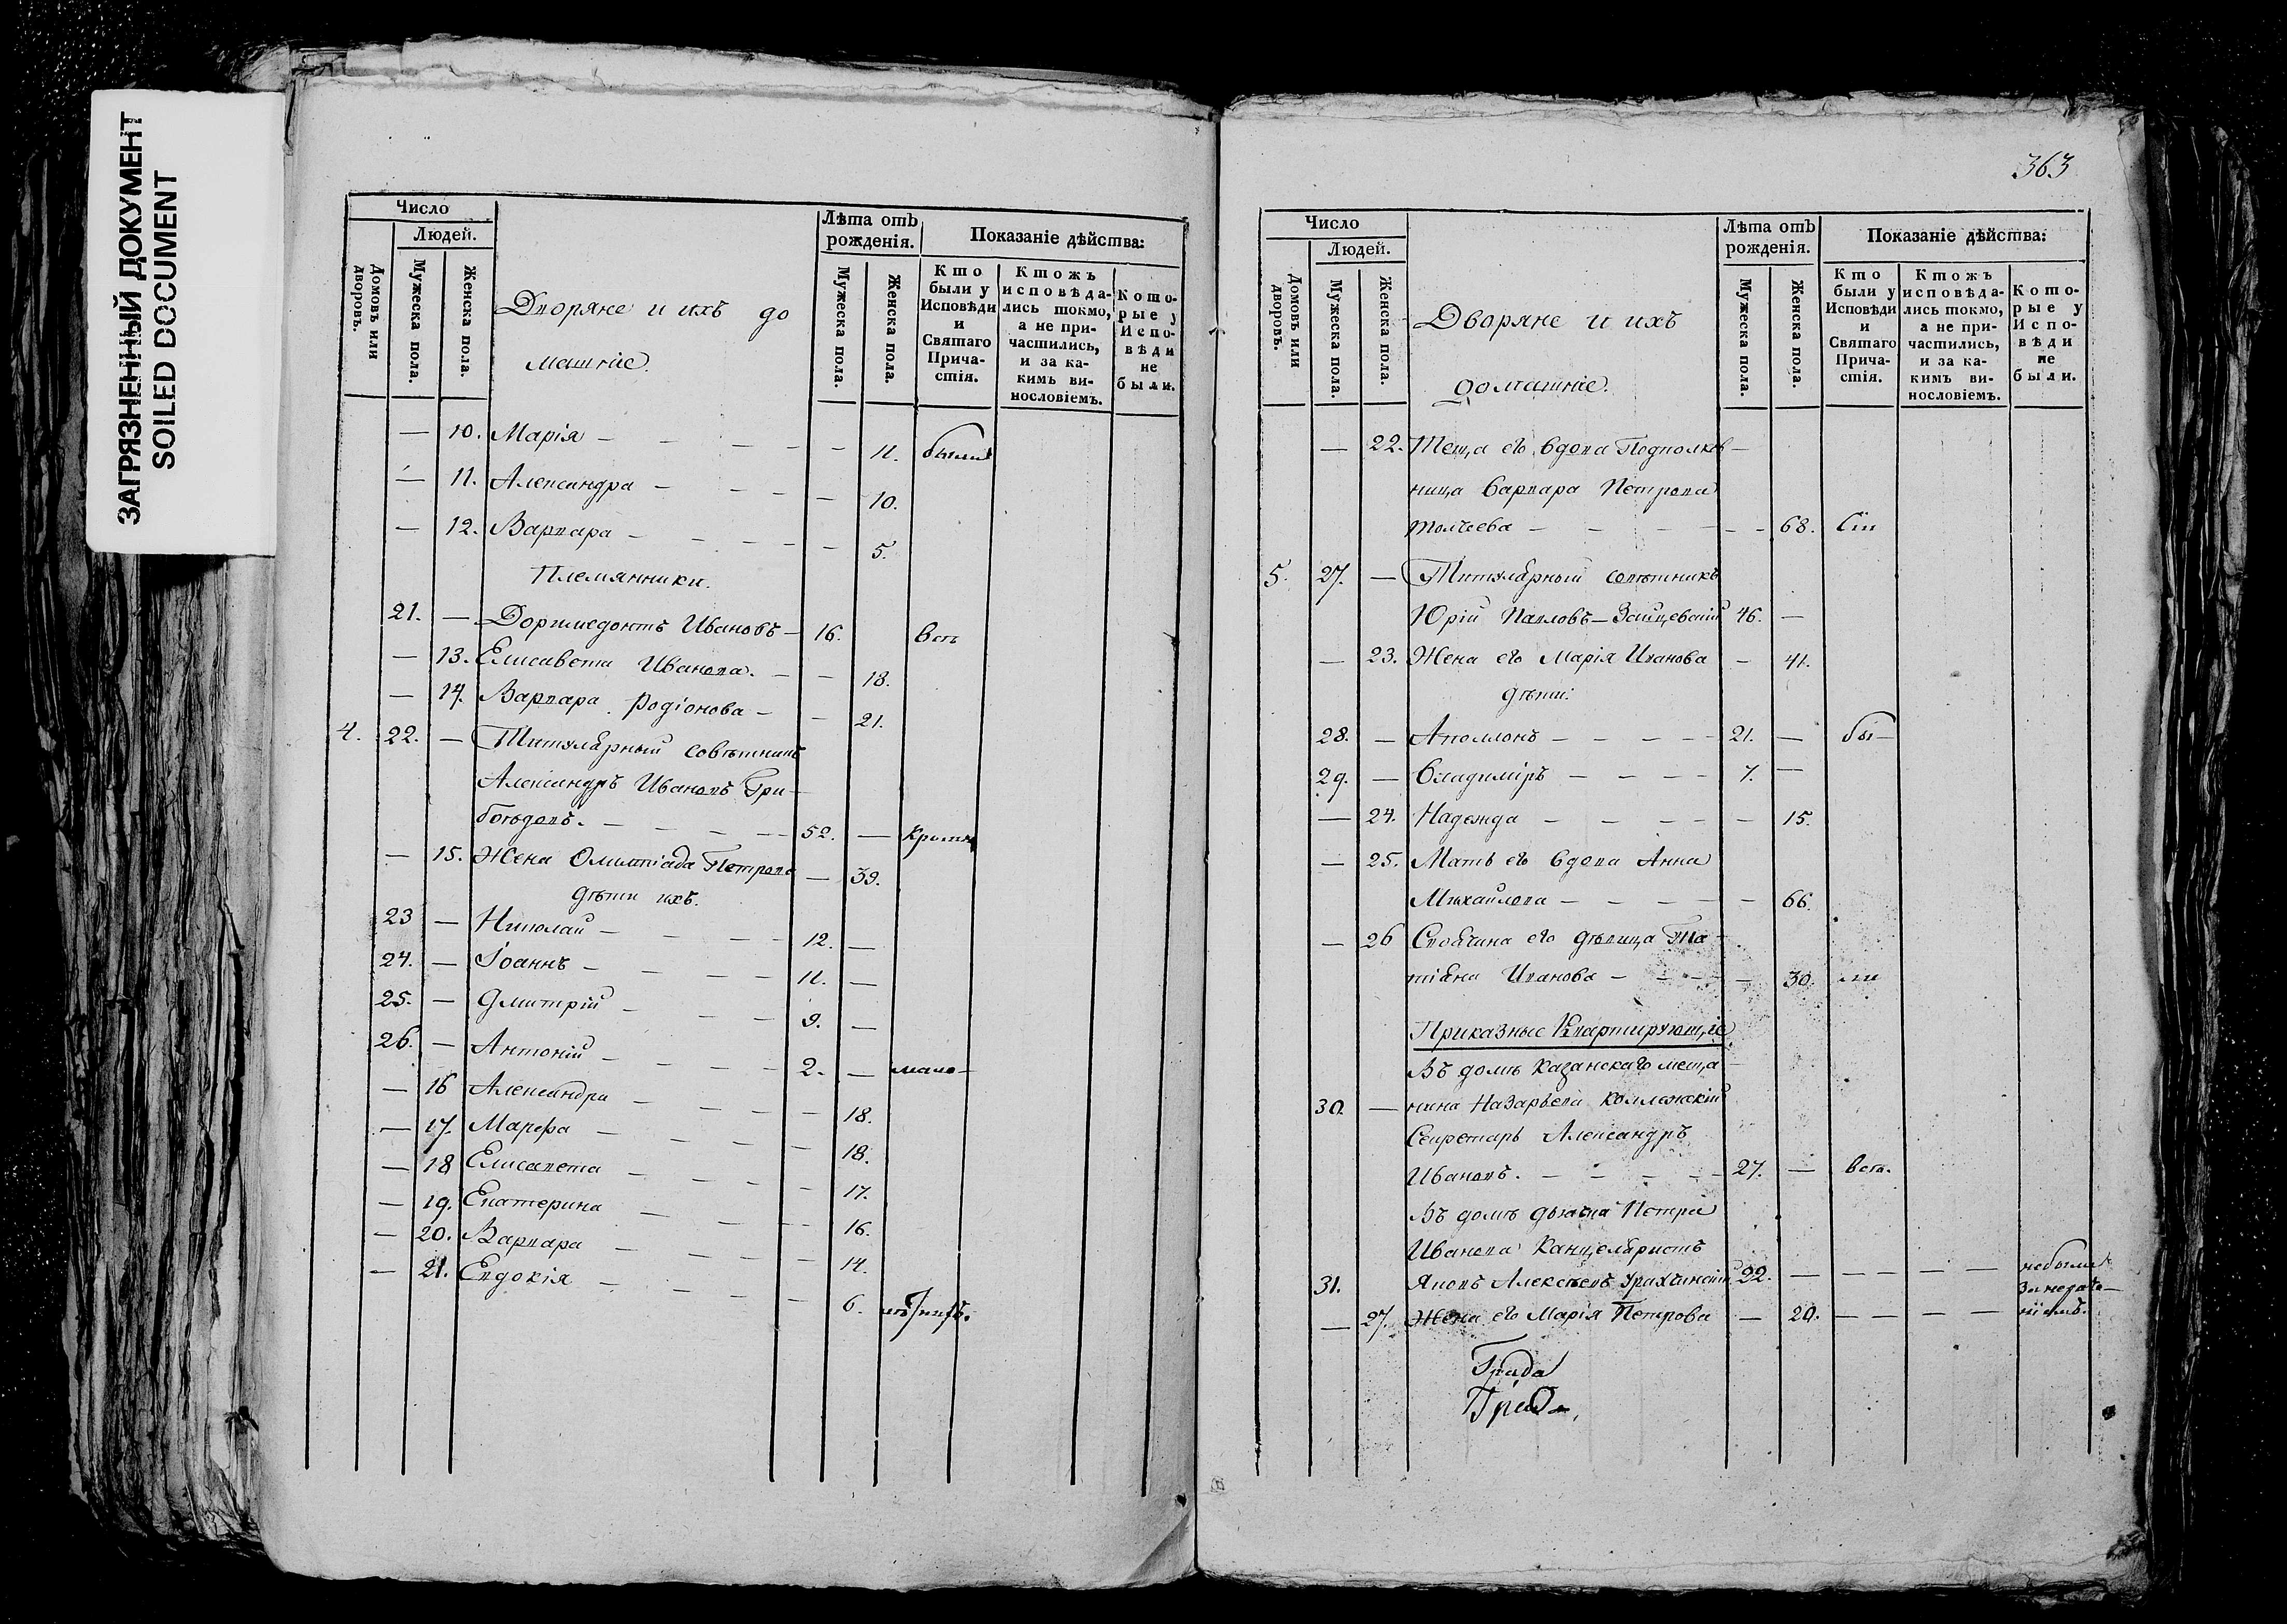 ЗАГРЯЗНЕННЫЙ ДОКУМЕНТ
SOILED DOCUMENT
Число
Людей.
Домовъ или дворовъ.
Мужеска пола.
Женска пола.
Дворяне и ихъ до
машніе.
Лѣта отъ рожденія.
Мужеска пола.
Женска пола.
Показаніе дѣйства:
Кто были у Исповѣди и Святаго Причастія.
Ктожъ исповѣдались токмо, а не причастились, и за какимъ винословіемъ.
Которые у Исповѣди не были.
— 10. Марія — — — — — 11. были
— 11. Александра — — — — 10.
— 12. Варвара — — — — — 5.
Племянники.
21. — Дормедонтъ Ивановъ — 16. всѣ
— 13. Елисавета Иванова. — — 18.
— 14. Варвара Родіонова — — 21.
4. 22. — Титулярный совѣтникъ
Александръ Ивановъ Гри-
боѣдовъ. — — — — 52. — кромѣ
— 15. Жена Олимпіада Петрова — 39.
Дѣти ихъ.
23 — Николай — — — — 12. —
24. — Іоаннъ — — — — 11. —
25. — Дмитрій — — — 9. —
26. — Антоній — — — — 2. — мало-
— 16 Александра — — — — 18.
— 17. Марфа — — — — 18.
— 18 Елисавета — — — — 17.
— 19. Екатерина — — — — 16.
— 20. Варвара — — — — 14.
— 21. Евдокія — — — — 6.
363
Число
Людей.
Домовъ или дворовъ.
Мужеска пола.
Женска пола.
Дворяне и ихъ
домашніе.
Лѣта отъ рожденія.
Мужеска пола.
Женска пола.
Показаніе дѣйства:
Кто были у Исповѣди и Святаго Причастія.
Ктожъ исповѣдались токмо, а не причастились, и за какимъ винословіемъ.
Которые у Исповѣди не были.
— 22. Теща его вдова Подполков-
ница Варвара Петрова
Толчеева — — — — — 68. Сіи
5. 27. — Титулярный совѣтникъ
Юрій Павловъ — Зайцевскій 46. —
— 23. Жена его Марія Иванова — 41.
дѣти:
28. — Аполлонъ — — — — 21. — бы-
29. — Владиміръ — — — — 7. —
— 24. Надежда — — — — — 15.
— 25. Мать его вдова Анна
Михайлова — — — — — 66.
— 26 Своячина его дѣвица Та-
тіана Иванова — — — — 30. ли
Приказные Квартирующіе
Въ домѣ Казанскаго меща-
30. — нина Назарьева Коллежскій
Секретарь Александръ
Ивановъ. — — — — 27. — всѣ.
Въ домѣ дьячка Петра
Иванова Канцеляристъ
31. Яковъ Алексѣевъ 22. — — — — — небыли
За неради-
— 27. Жена его Марія Петрова — 20. — — — — ніемъ.
Града
Града